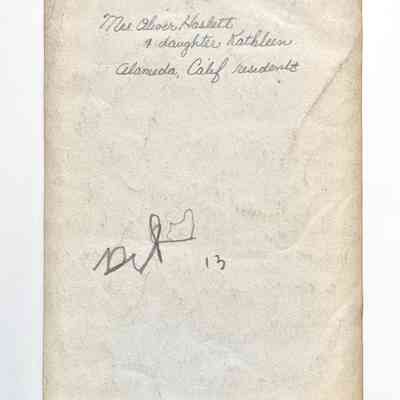 Mrs Oliver Haslett
& daughter Kathleen
Alameda, Calif residents
13